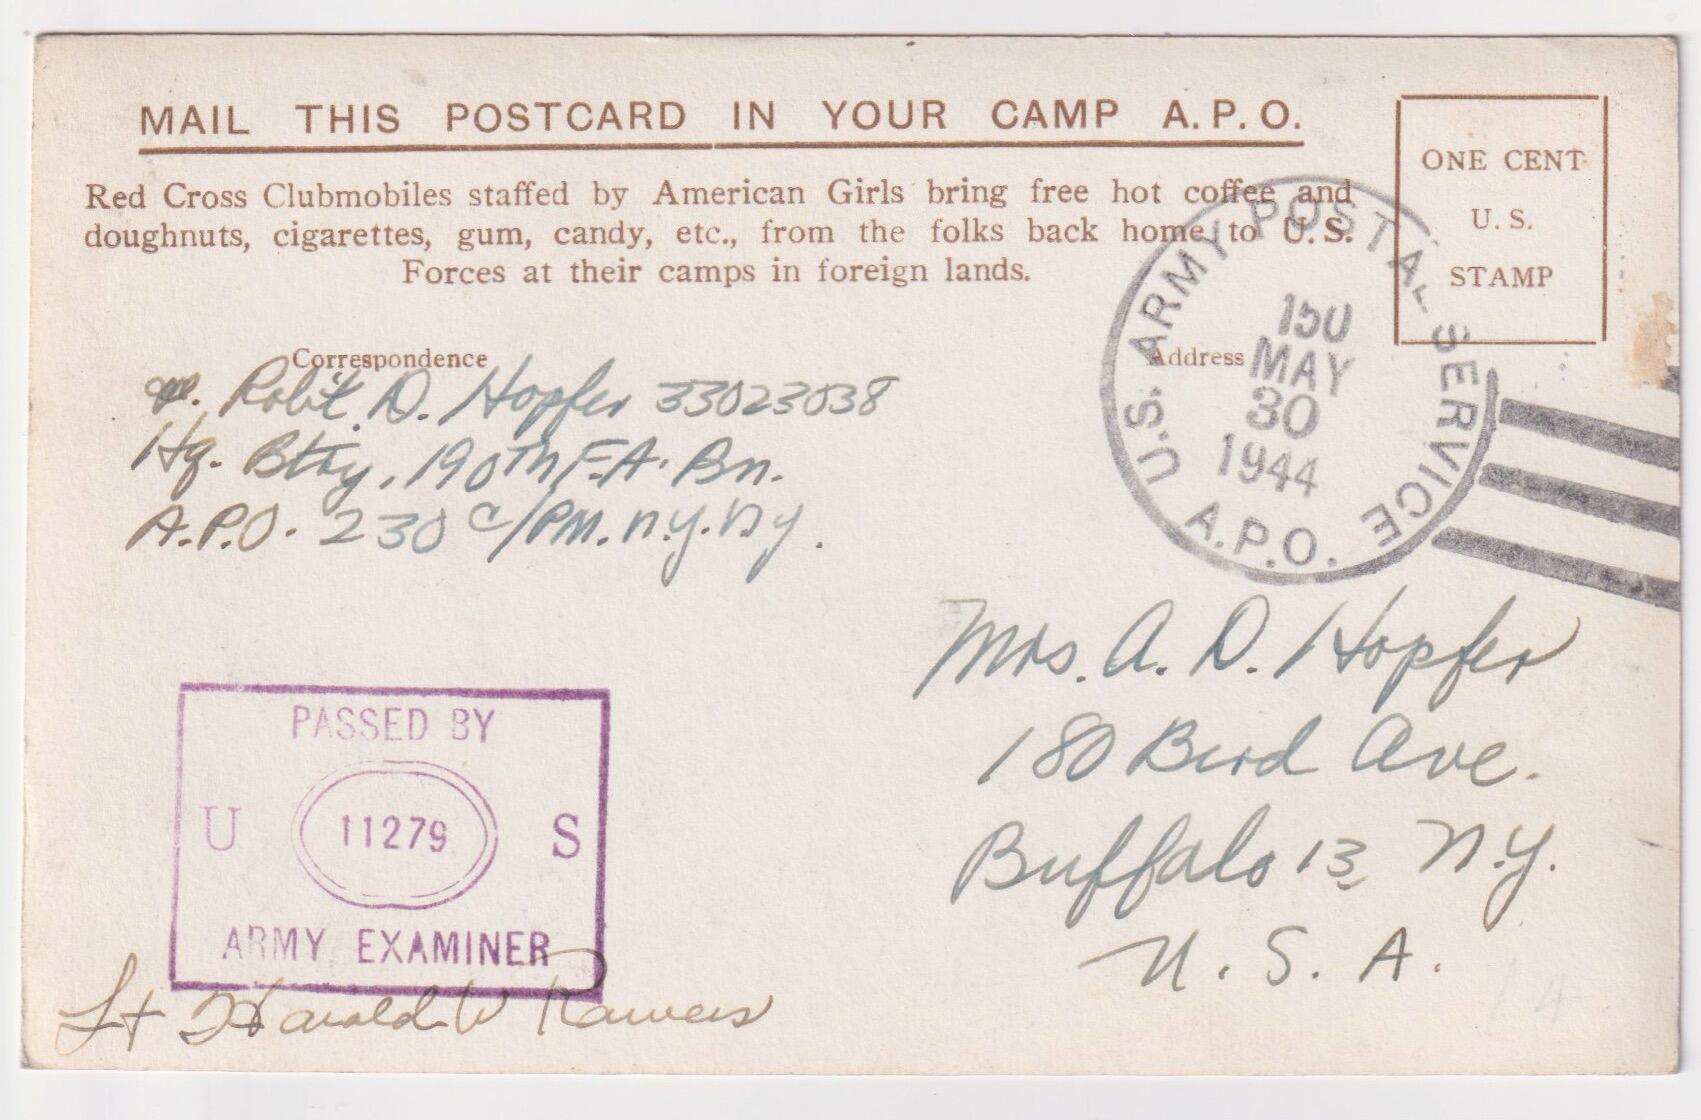 MAIL THIS POSTCARD IN YOUR CAMP A.P.O.
Red Cross Clubmobiles staffed by American Girls bring free hot coffee and
doughnuts, cigarettes, gum, candy, etc., from the folks back home to U.S.
Forces at their camps in foreign lands.
ONE CENT
U.S.
STAMP
U.S. ARMY POSTAL SERVICE
A.P.O.
150
MAY
30
1944
Correspondence
Address
Robt. D. Hopfer 33023038
Hq. Btry, 190th F.A. Bn.
A.P.O. 230 c/PM. N.Y. NY.
Mrs. A. D. Hopfer
180 Bird Ave.
Buffalo 13, N.Y.
U. S. A.
PASSED BY
U 11279 S
ARMY EXAMINER
Lt Harold W